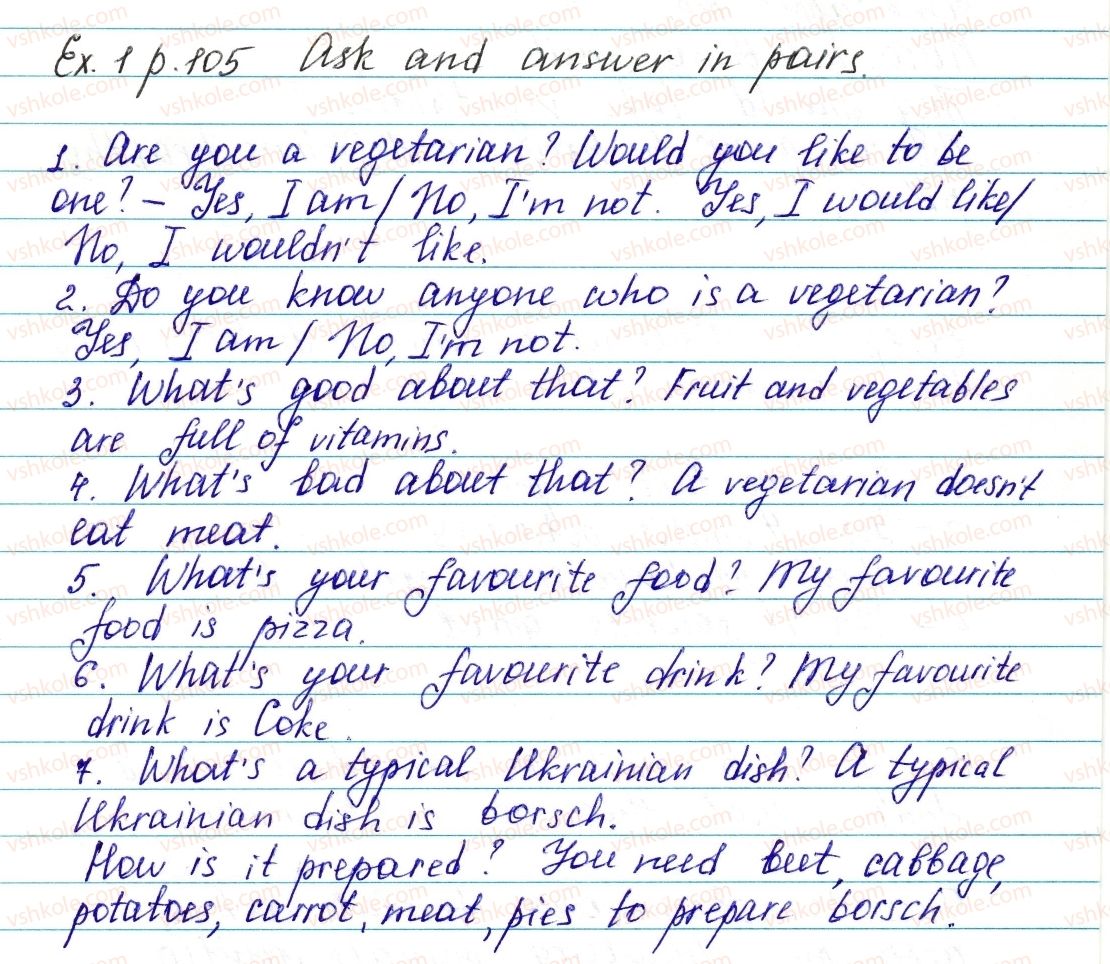 Ex. 1 p.105 Ask and answer in pairs.
1. Are you a vegetarian? Would you like to be
one? – Yes, I am / No, I'm not. Yes, I would like/
No, I wouldn't like.
2. Do you know anyone who is a vegetarian?
Yes, I am / No, I'm not.
3. What's good about that? Fruit and vegetables
are full of vitamins.
4. What's bad about that? A vegetarian doesn't
eat meat.
5. What's your favourite food? My favourite
food is pizza.
6. What's your favourite drink? My favourite
drink is Coke.
7. What's a typical Ukrainian dish? A typical
Ukrainian dish is borsch.
How is it prepared? You need beet, cabbage,
potatoes, carrot, meat, pies to prepare borsch.